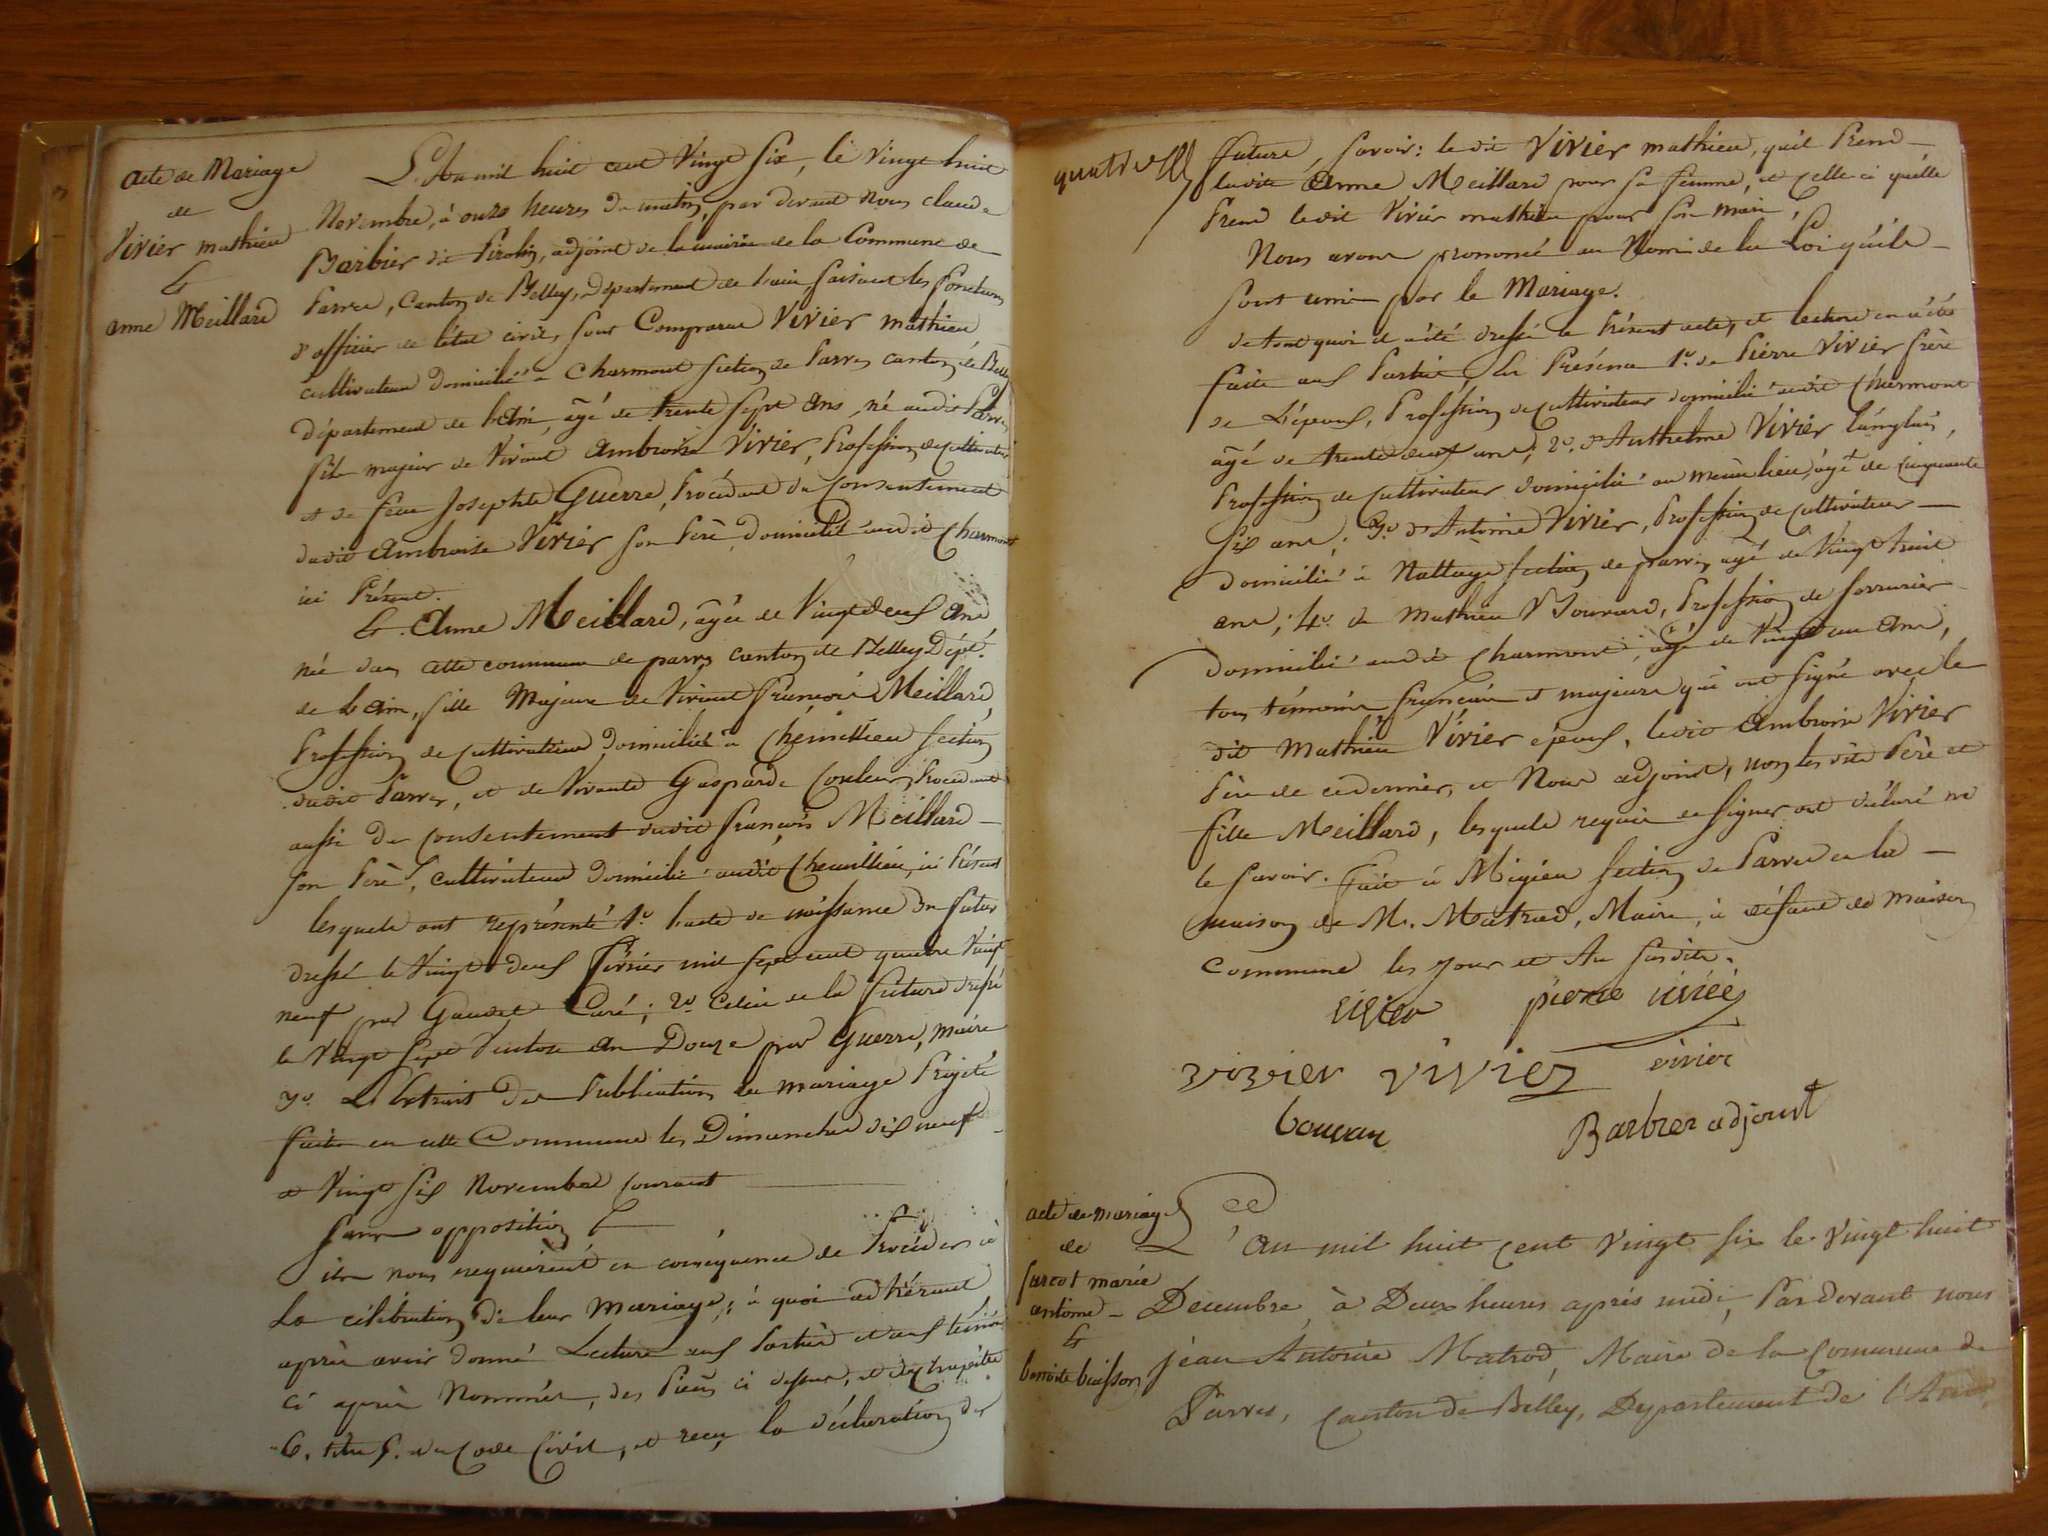 acte de Mariage
de
Vivier mathieu
&
anne Meillard
L'An mil huit cent Vingt Six, le vingt huit
Novembre, à onze heures du matin, par devant Nous claude
Barbier dit Pirolin, adjoint de la mairie de la Commune de
Parves, Canton de Belley, département de l'ain faisant les fonctions
d'officier de l'état civil, sont Comparus Vivier mathieu
cultivateur domicilié à Charmont section de Parves canton de Belley
département de l'Ain, âgé de trente sept ans, né audit Parves
fils majeur de Vivant Ambroise Vivier, Profession de cultivateur
et de feue Josephte Guerre, Procédant du Consentement
dudit Ambroise Vivier son Père, domicilié audit Charmont
ici Présent.
Et Anne Meillard, âgée de Vingt deux Ans,
née dans cette commune de parves canton de Belley Dépt.
de l'Ain, fille Majeure de Vivant François Meillard,
Profession de Cultivateur, domicilié à Chémillieu section
dudit Parves, et de Vivante Gasparde Couleur, Procédant
aussi du consentement dudit françois Meillard
son Père, cultivateur domicilié audit Chemillieu, ici Présent
lesquels ont représenté 1º. l'acte de naissance du futur
dressé le Vingt deux Février mil sept cent quatre Vingt
neuf par Gaudet Curé; 2º. Celui de la future dressé
le Vingt Sept Ventose An Douze par Guerre, maire
3º. L'Extrait des Publications du mariage Projeté
faites en cette Commune les Dimanches dix neuf
et Vingt six Novembre courant
sans opposition
ils nous requièrent en conséquence de Procéder à
La célébration de leur mariage; à quoi adhérant
après avoir donné Lecture aux Parties et aux témoins
ci après Nommés, des Pièces ci dessus, et du chapitre
6. titre 5. du Code Civil, et reçu la déclaration des
quatre
future, savoir: le dit Vivier mathieu, qu'il Prend
ladite Anne Meillard pour sa femme, et celle ci qu'elle
Prend ledit Vivier mathieu pour son mari,
Nous avons prononcé au Nom de la Loi qu'ils
sont unis par le Mariage.
de tout quoi il a été dressé le Présent acte, et lecture en a été
faite aux Parties En Présence 1º. de Pierre Vivier frère
de L'époux, Profession de Cultivateur domicilié audit Charmont
âgé de trente deux ans; 2º. d'Anthelme Vivier
Profession de Cultivateur domicilié au même lieu, âgé de Cinquante
six ans; 3º. d'Antoine Vivier, Profession de Cultivateur
domicilié à Nattage section de parves, âgé de Vingt huit
ans; 4º. de mathieu Bouvard, Profession de serrurier
domicilié audit Charmont, âgé de Vingt un Ans,
tous témoins français et majeurs qui ont signé avec le
dit Mathieu Vivier époux, ledit Ambroise Vivier
Père de ce dernier, et Nous adjoint, non les dits Père et
fille Meillard, lesquels requis de signer ont déclaré ne
le savoir. Fait à Migieu section de Parves en la
maison de M. Matrod, Maire, à défaut de maison
Commune les jour et An susdits.
vivier pierre vivier
vivier vivier vivier
bouvar Barbier adjoint
acte de mariage
de
sarcot marie
antoine
&
benoite buisson
L'an mil huit cent Vingt Six le Vingt huit
Decembre, à Deux heures après midi, Pardevant nous
jean Antoine Matrod, Maire de la Commune de
Parves, Canton de Belley, Département de l'Ain,